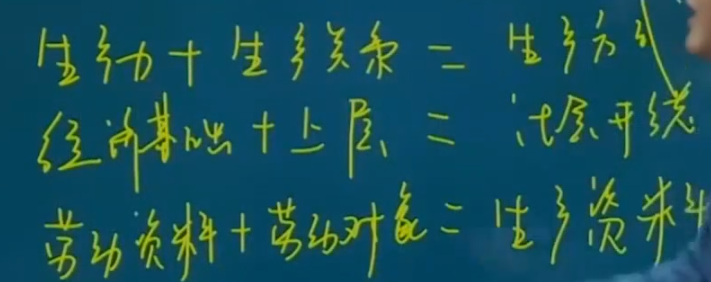 生产力+生产关系=生产方式
经济基础+上层=社会形态
劳动资料+劳动对象=生产资料